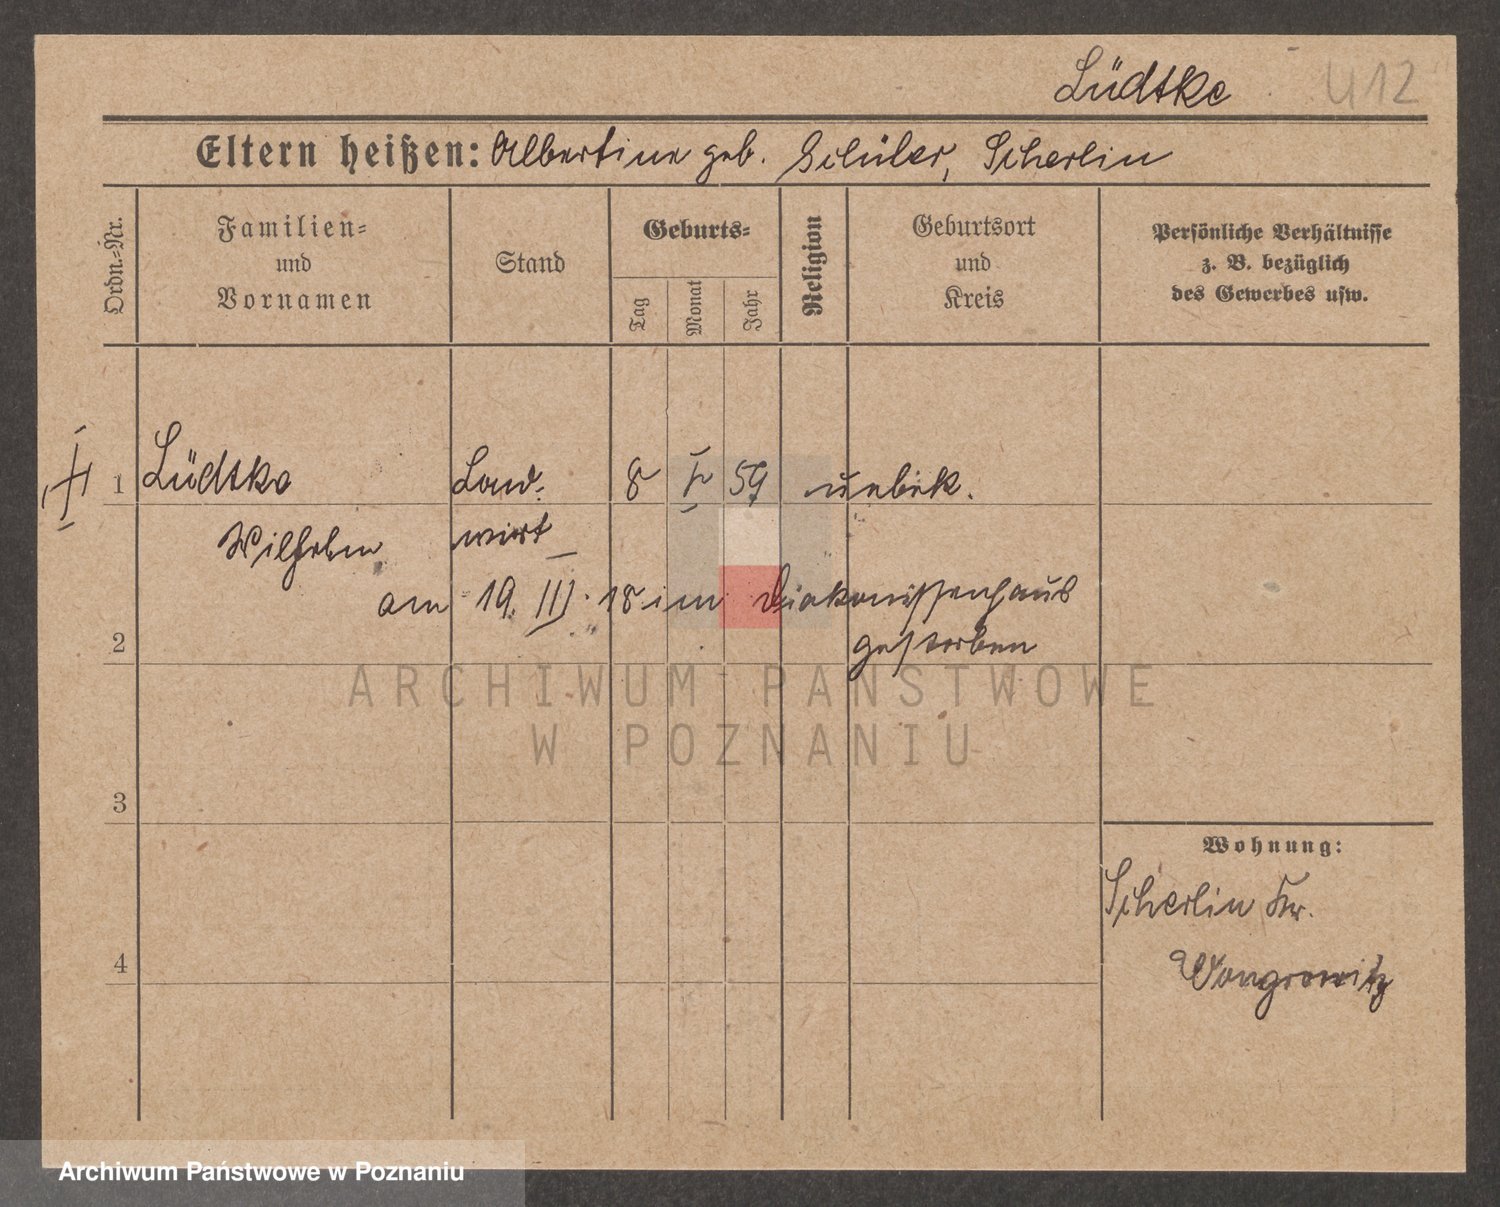 Lüdtke U12
Eltern heißen: Albertine geb. Schüler, Scherlin
Ordn.-Nr.
Familien-
und
Vornamen
Stand
Geburts-
Tag
Monat
Jahr
Religion
Geburtsort
und
Kreis
Persönliche Verhältnisse
z. B. bezüglich
des Gewerbes usw.
1 Lüdtke Land- 8 59 unbek.
Wilhelm wirt
am 19. III. 18 im Diakonissenhaus
2 gestorben
ARCHIWUM PAŃSTWOWE
W POZNANIU
3
Wohnung:
Scherlin Kr.
4 Wongrowitz
Archiwum Państwowe w Poznaniu